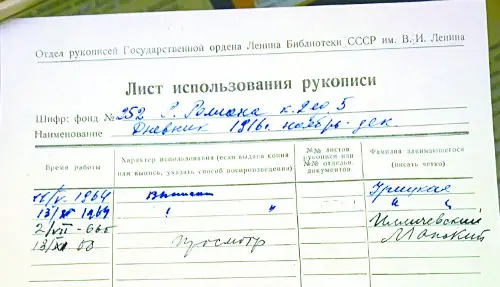 Отдел рукописей Государственной ордена Ленина Библиотеки СССР им. В. И. Ленина
Лист использования рукописи
Шифр: фонд № 252 Р. Роллана к. 2 ед 5
Наименование Дневник 1916г. ноябрь-дек.
Время работы
Характер использования (если выдана копия
или выписка, указать способ воспроизведения)
№№ листов
рукописи или
№№ отдельн.
документов
Фамилия занимающегося
(писать четко)
1964 Выписки Урицкая
13/XI 1964 " " " "
2/VII - 66г
13/XI просмотр